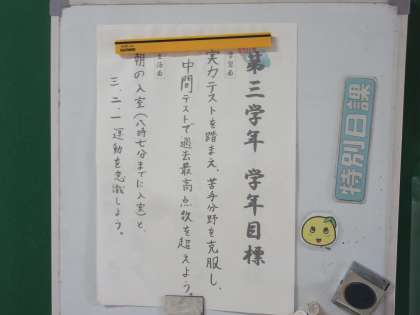 第三学年 学年目標
学習面
実力テストを踏まえ、苦手分野を克服し、
中間テストで過去最高点数を超えよう。
生活面
朝の入室(八時七分までに入室)と、
三、二、一運動を意識しよう。
特別日課